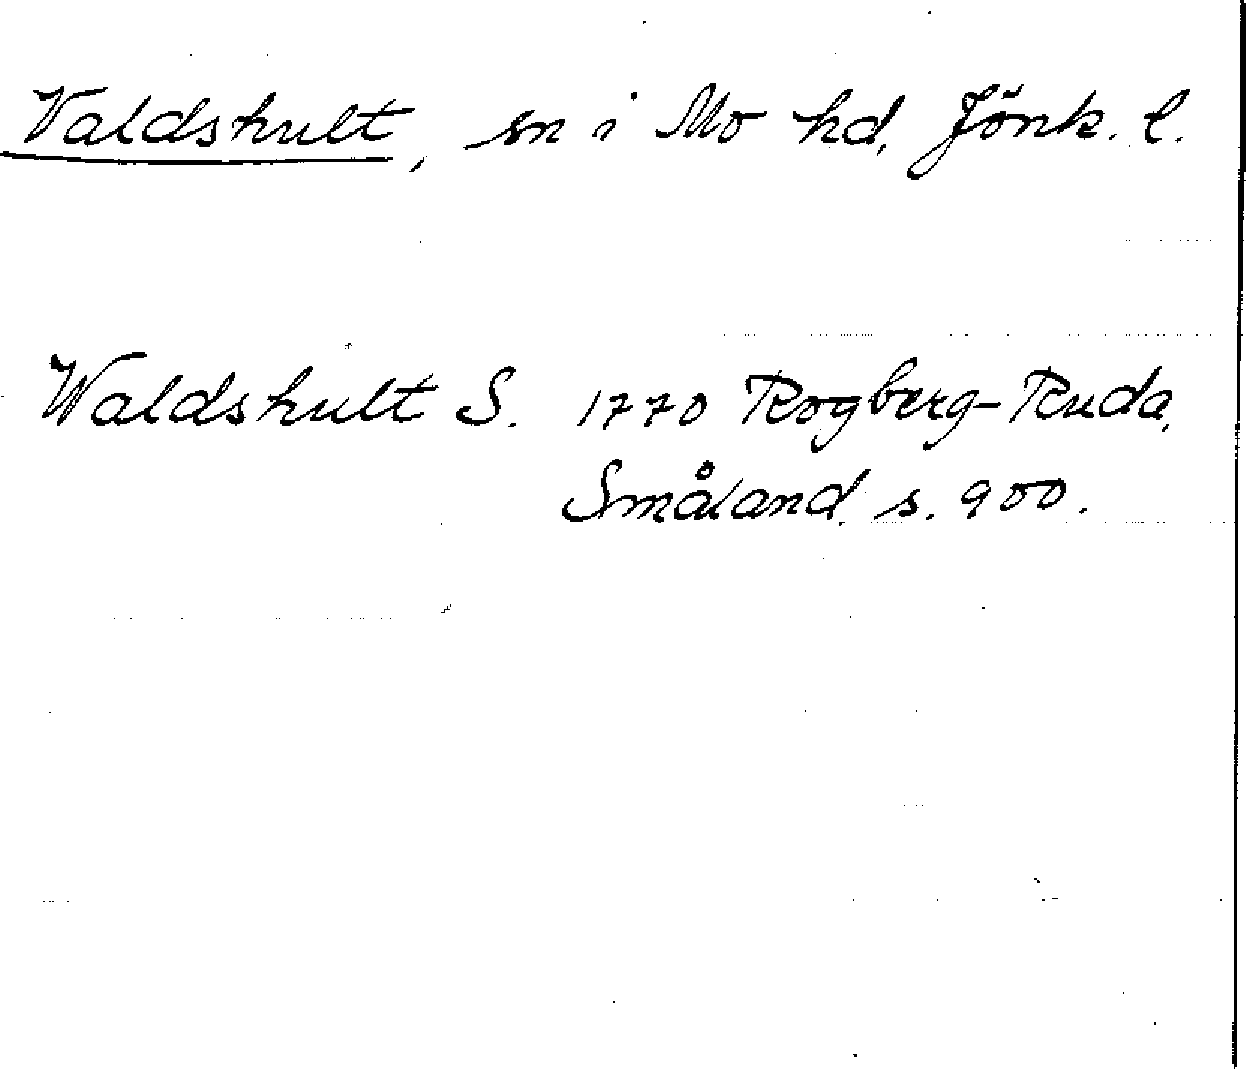 Valdshult, sn i Mo hd, Jönk. l.
Waldshult S. 1770 Rogberg-Ruda,
Småland s. 900.